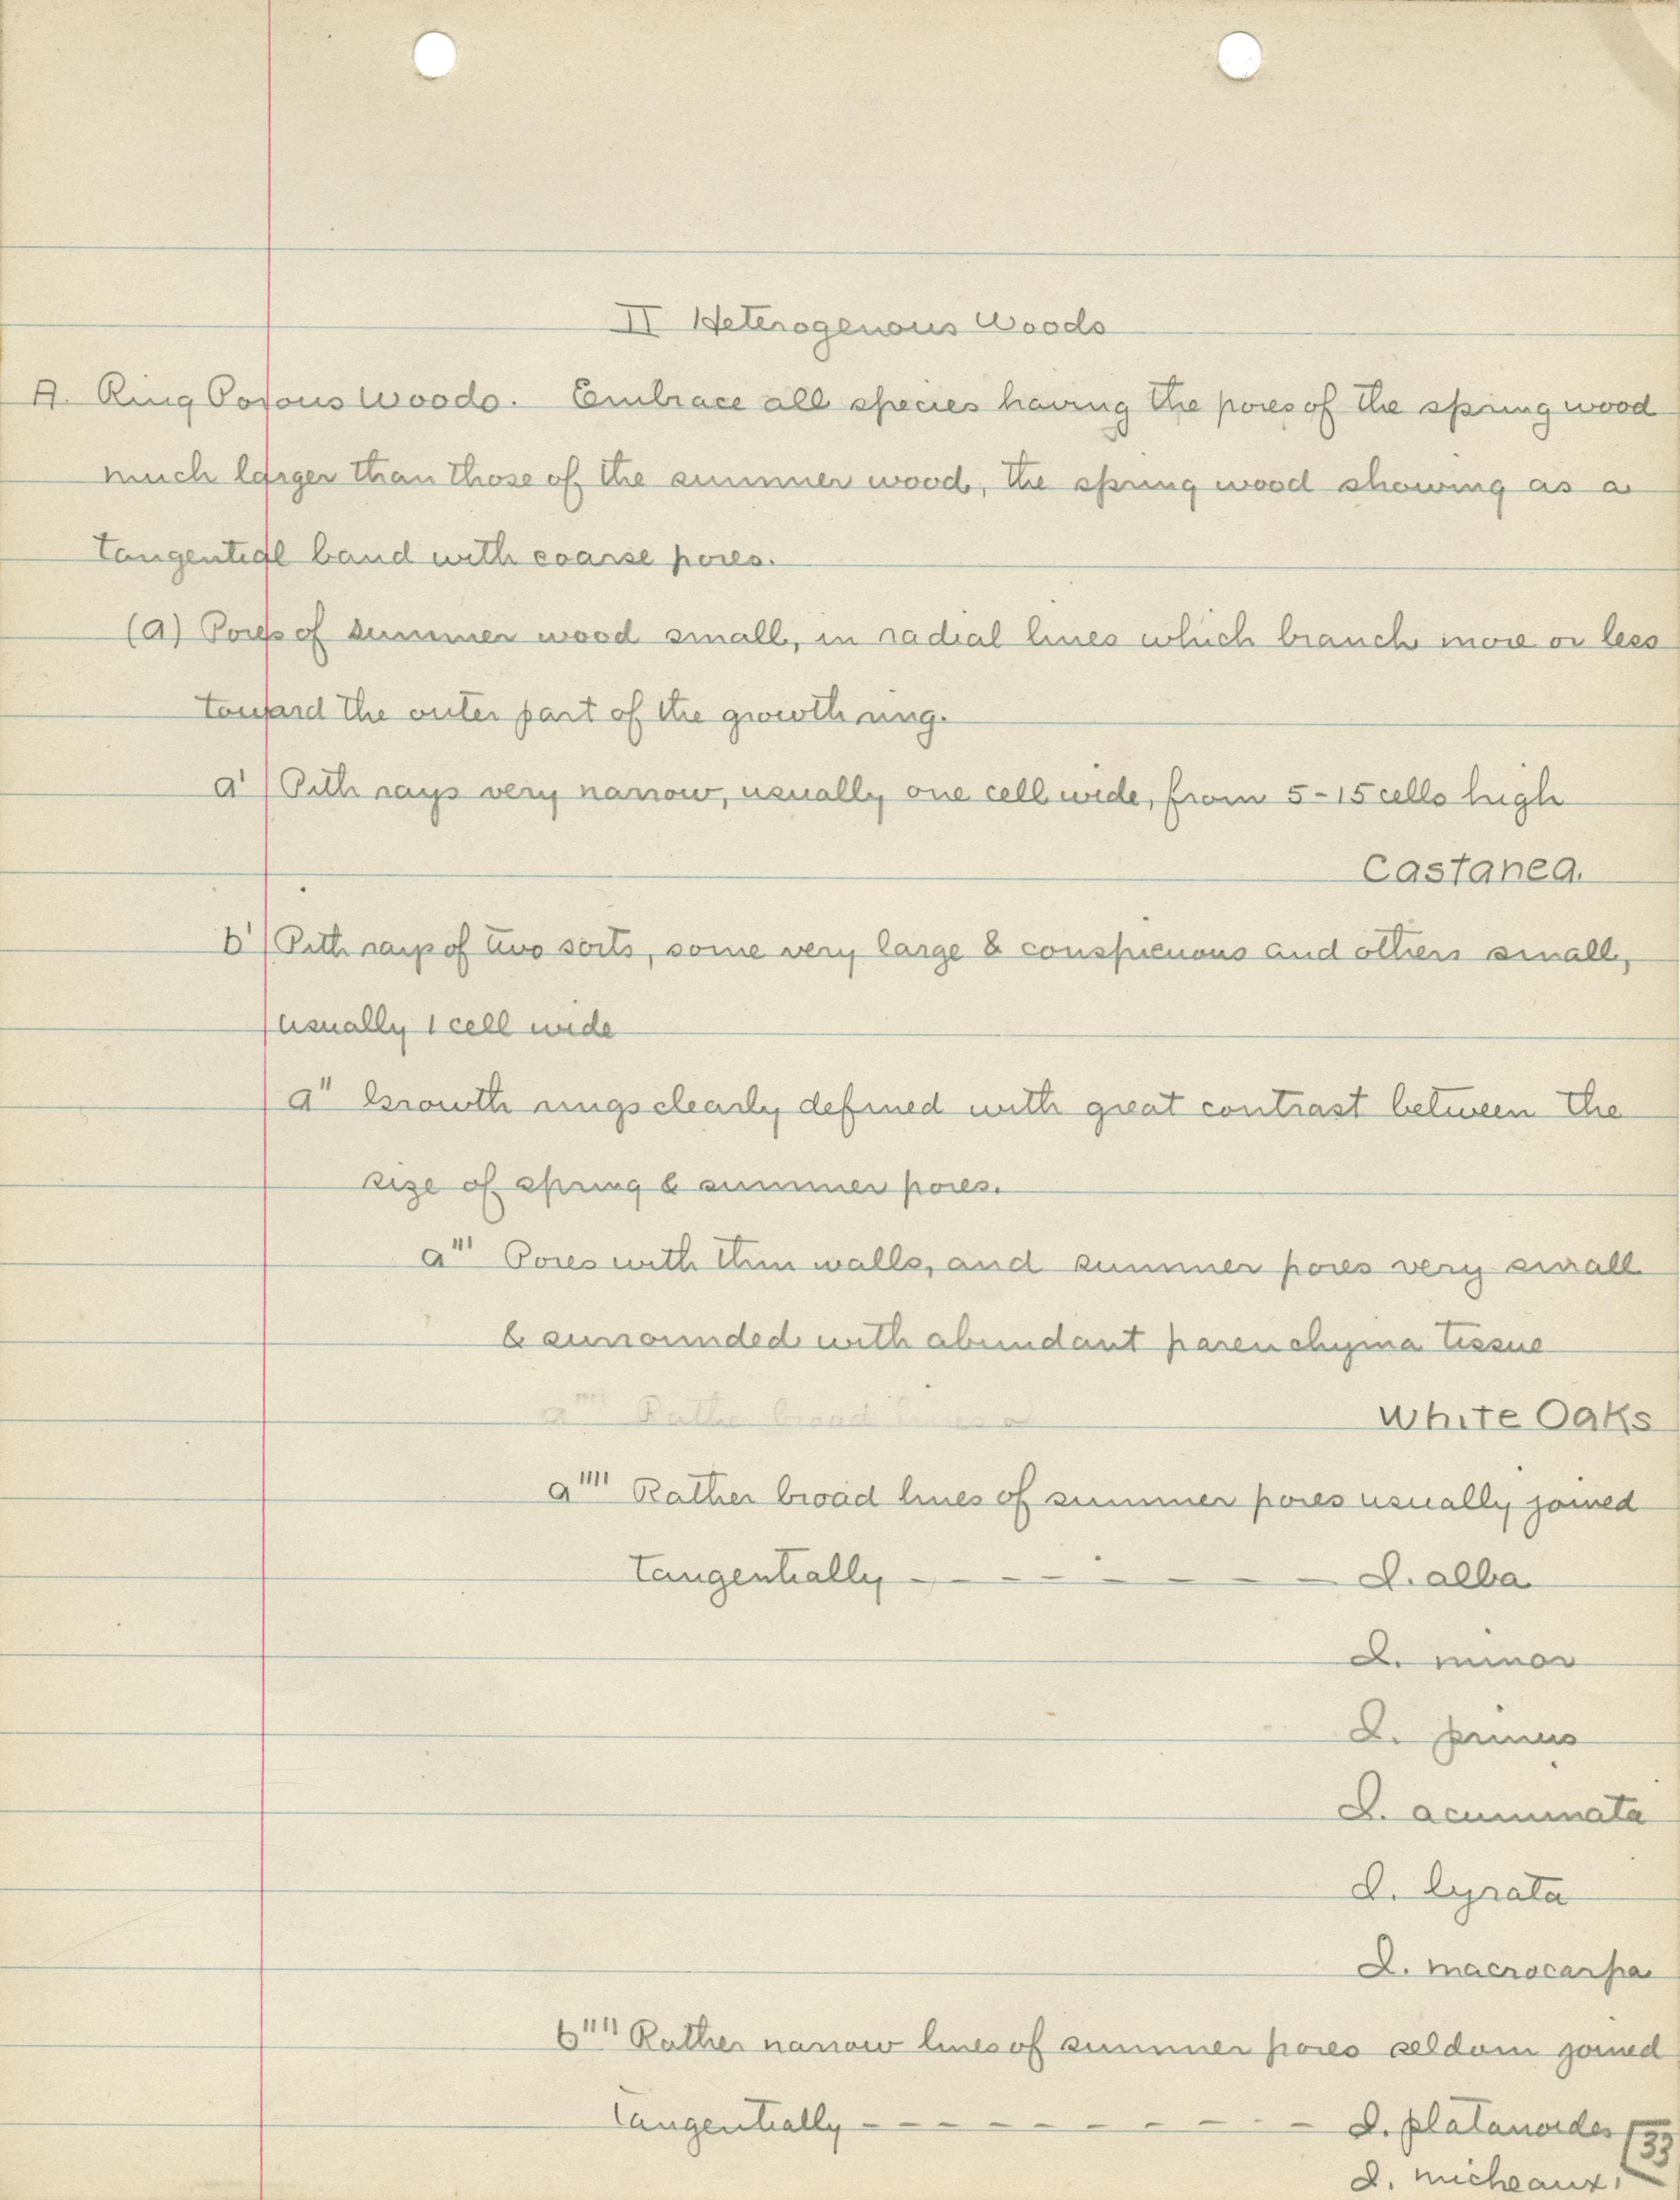 II Heterogenous Woods
A. Ring Porous Woods. Embrace all species having the pores of the spring wood
much larger than those of the summer wood, the spring wood showing as a
tangential band with coarse pores.
(a) Pores of summer wood small, in radial lines which branch more or less
toward the outer part of the growth ring.
a' Pith rays very narrow, usually one cell wide, from 5-15 cells high
Castanea.
b' Pith rays of two sorts, some very large & conspicuous and others small,
usually 1 cell wide
a" Growth rings clearly defined with great contrast between the
size of spring & summer pores.
a''' Pores with thin walls, and summer pores very small
& surrounded with abundant parenchyma tissue
a'''' Rathe broad lines o
White Oaks
a'''' Rather broad lines of summer pores usually joined
tangentially - - - - - - - - Q. alba
Q. minor
Q. prinus
Q. acuminata
Q. lyrata
Q. macrocarpa
b'''' Rather narrow lines of summer pores seldom joined
tangentially - - - - - - - - - Q. platanoides
Q. micheauxi
33